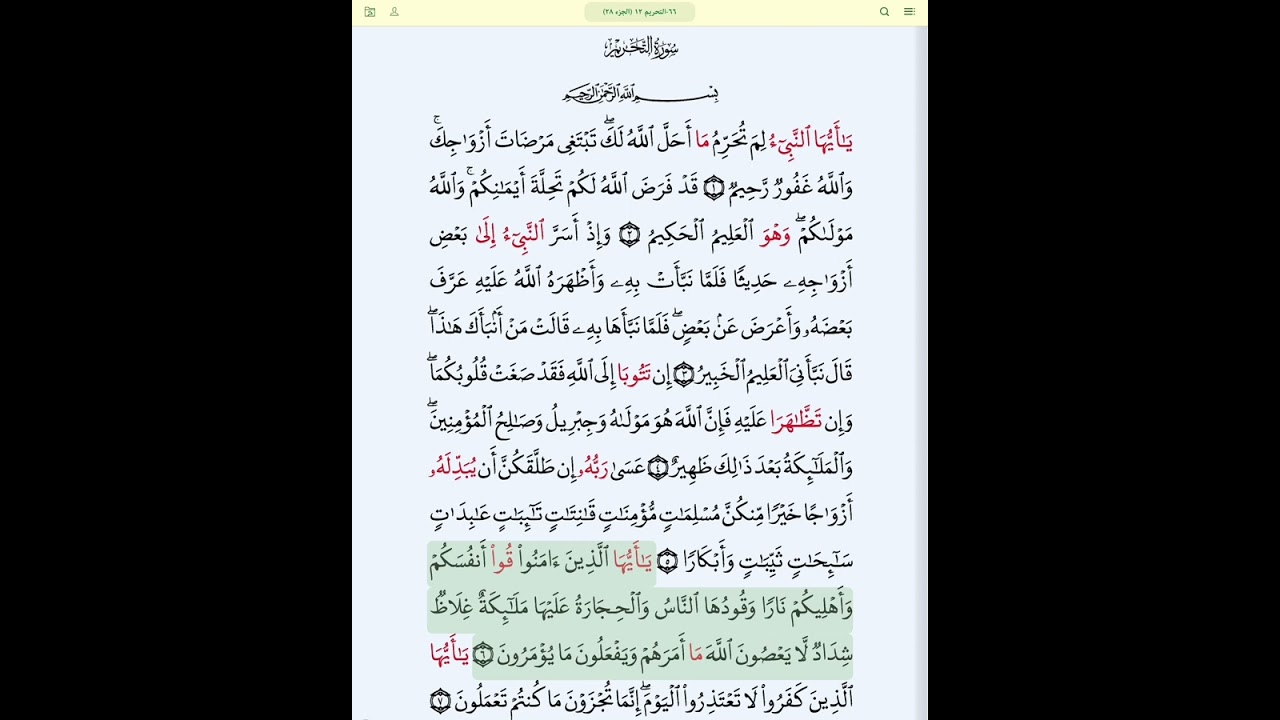 ٦٦-التحريم ١٢ (الجزء ٢٨)
سُورَةُ التَّحْرِيمِ
بِسْمِ ٱللَّهِ ٱلرَّحْمَٰنِ ٱلرَّحِيمِ
يَٰٓأَيُّهَا ٱلنَّبِىُّ لِمَ تُحَرِّمُ مَآ أَحَلَّ ٱللَّهُ لَكَۖ تَبْتَغِى مَرْضَاتَ أَزْوَٰجِكَۚ
وَٱللَّهُ غَفُورٌ رَّحِيمٌ ١ قَدْ فَرَضَ ٱللَّهُ لَكُمْ تَحِلَّةَ أَيْمَٰنِكُمْۚ وَٱللَّهُ
مَوْلَىٰكُمْۖ وَهْوَ ٱلْعَلِيمُ ٱلْحَكِيمُ ٢ وَإِذْ أَسَرَّ ٱلنَّبِىٓءُ إِلَىٰ بَعْضِ
أَزْوَٰجِهِۦ حَدِيثًا فَلَمَّا نَبَّأَتْ بِهِۦ وَأَظْهَرَهُ ٱللَّهُ عَلَيْهِ عَرَّفَ
بَعْضَهُۥ وَأَعْرَضَ عَنۢ بَعْضٍۖ فَلَمَّا نَبَّأَهَا بِهِۦ قَالَتْ مَنْ أَنۢبَأَكَ هَٰذَاۖ
قَالَ نَبَّأَنِىَ ٱلْعَلِيمُ ٱلْخَبِيرُ ٣ إِن تَتُوبَا إِلَى ٱللَّهِ فَقَدْ صَغَتْ قُلُوبُكُمَاۖ
وَإِن تَظَّٰهَرَا عَلَيْهِ فَإِنَّ ٱللَّهَ هُوَ مَوْلَىٰهُ وَجِبْرِيلُ وَصَٰلِحُ ٱلْمُؤْمِنِينَۖ
وَٱلْمَلَٰٓئِكَةُ بَعْدَ ذَٰلِكَ ظَهِيرٌ ٤ عَسَىٰ رَبُّهُۥ إِن طَلَّقَكُنَّ أَن يُبَدِّلَهُۥ
أَزْوَٰجًا خَيْرًا مِّنكُنَّ مُسْلِمَٰتٍ مُّؤْمِنَٰتٍ قَٰنِتَٰتٍ تَٰٓئِبَٰتٍ عَٰبِدَٰتٍ
سَٰٓئِحَٰتٍ ثَيِّبَٰتٍ وَأَبْكَارًا ٥ يَٰٓأَيُّهَا ٱلَّذِينَ ءَامَنُوا۟ قُوٓا۟ أَنفُسَكُمْ
وَأَهْلِيكُمْ نَارًا وَقُودُهَا ٱلنَّاسُ وَٱلْحِجَارَةُ عَلَيْهَا مَلَٰٓئِكَةٌ غِلَاظٌ
شِدَادٌ لَّا يَعْصُونَ ٱللَّهَ مَآ أَمَرَهُمْ وَيَفْعَلُونَ مَا يُؤْمَرُونَ ٦ يَٰٓأَيُّهَا
ٱلَّذِينَ كَفَرُوا۟ لَا تَعْتَذِرُوا۟ ٱلْيَوْمَۖ إِنَّمَا تُجْزَوْنَ مَا كُنتُمْ تَعْمَلُونَ ٧